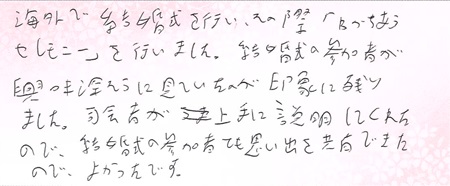 海外で結婚式を行い、その際「白がちあう
セレモニー」を行いました。結婚式の参加者が
興味深そうに見ていたのが印象に残り
ました。司会者が上手に説明してくれた
ので、結婚式の参加者でも思い出を共有できた
ので、よかったです。